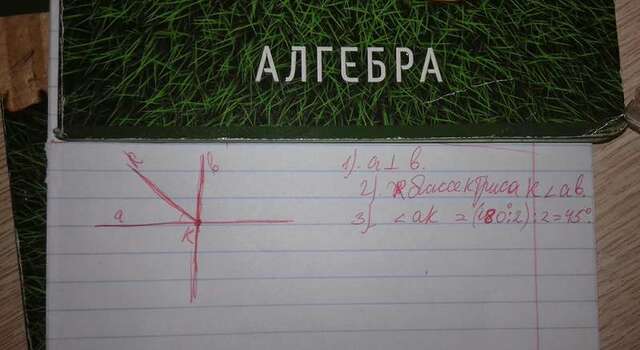 АЛГЕБРА
b
1). a ⊥ b.
a
2). биссектриса k ∠ ab.
K
3) ∠ aK = (180°:2):2=45°.